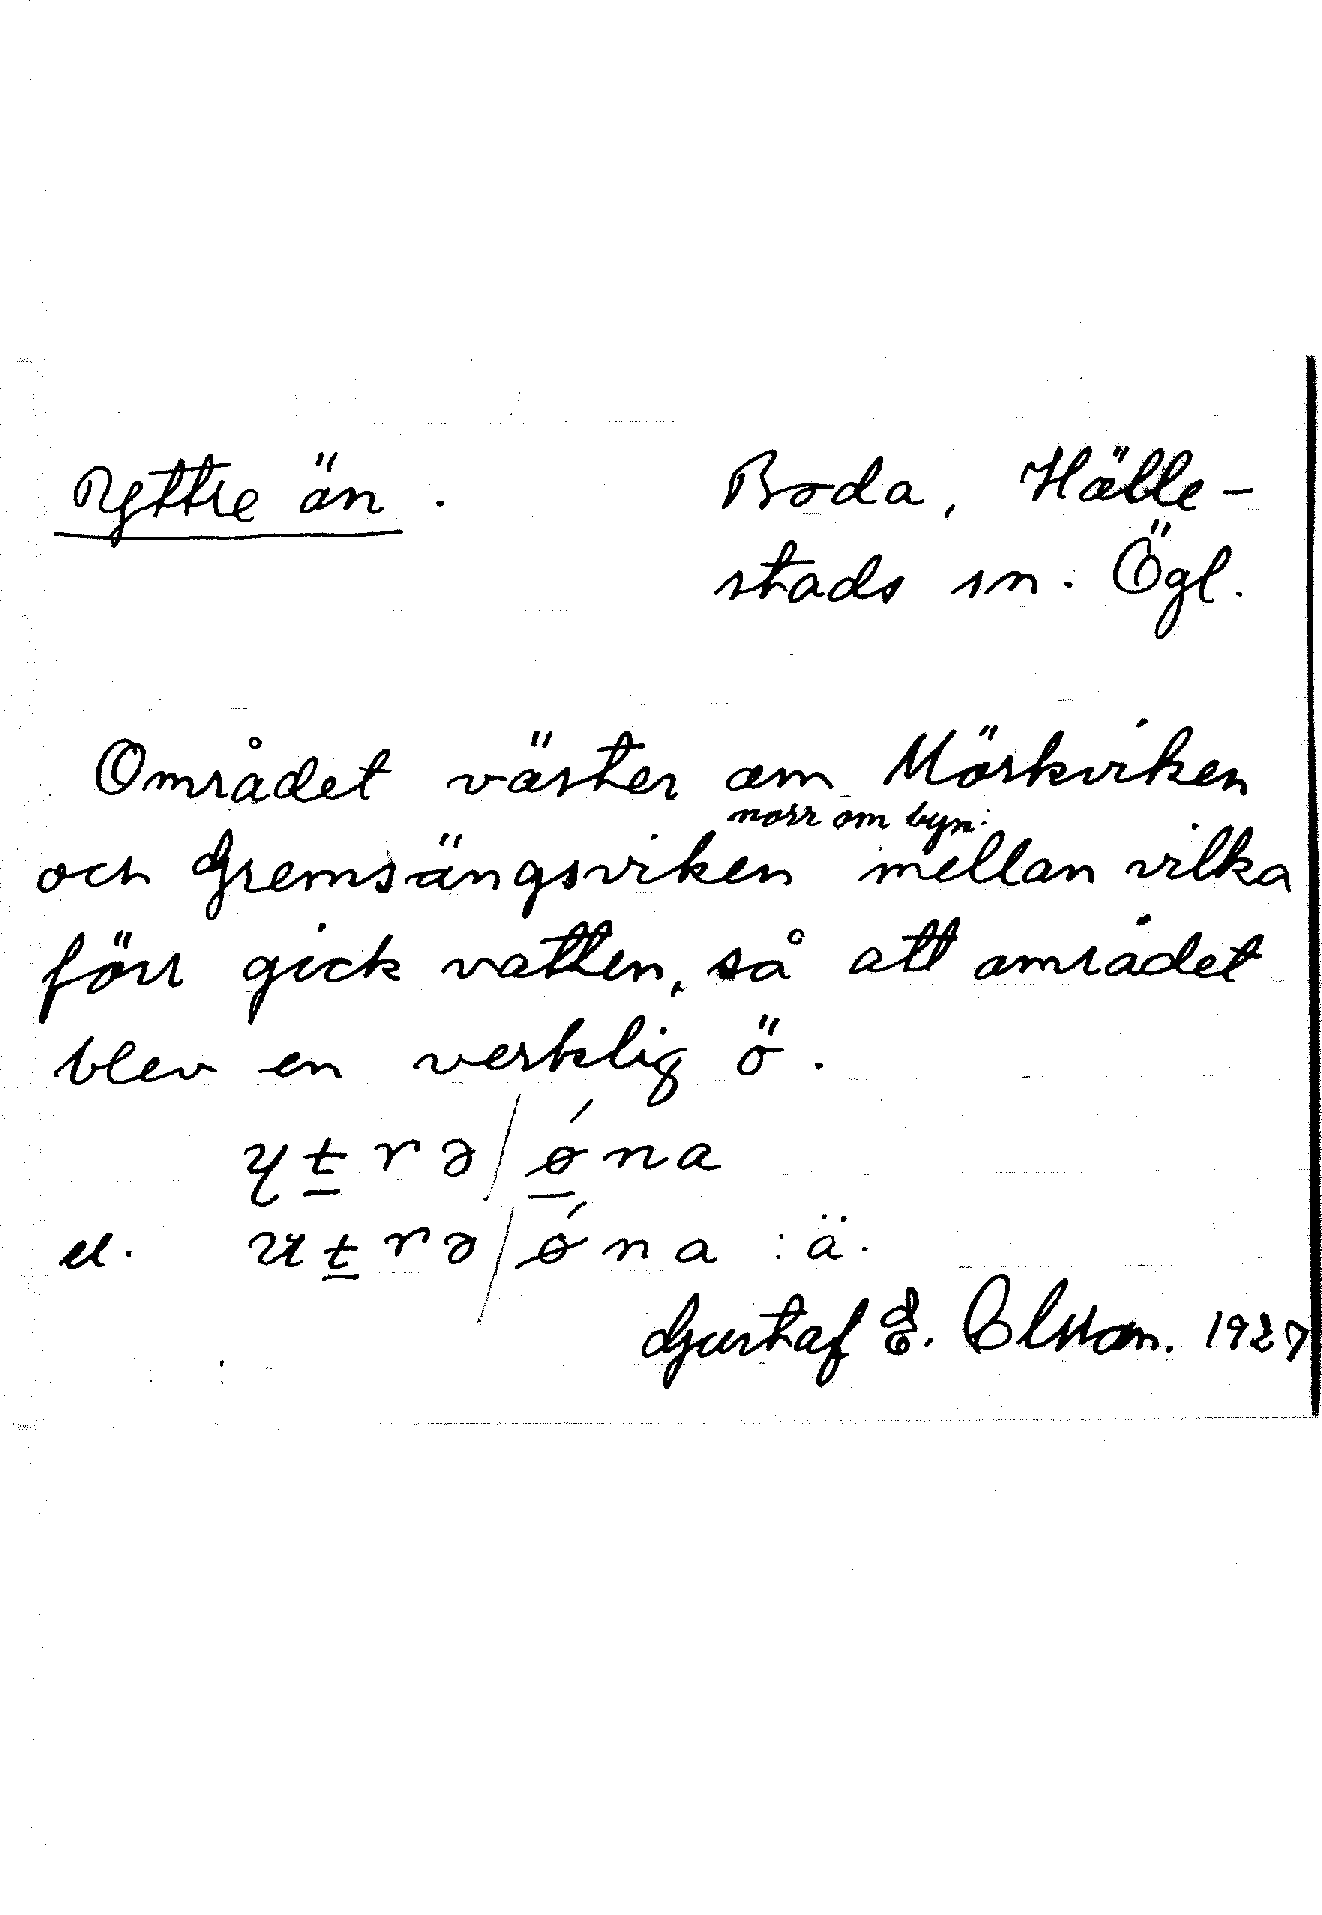 Yttre ön. Boda, Hälle-
stads sn. Ögl.
Området väster om Mörkviken
norr om byn.
och Gremsängsviken mellan vilka
förr gick vatten, så att området
blev en verklig ö.
yt̲rə/ǿ̲na
el. ut̲rə/ǿna : ä.
Gustaf E. Olsson. 1927